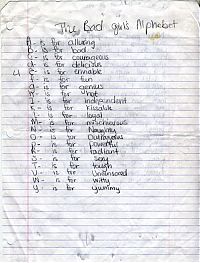 The Bad girls Alphabet
A - is for alluring
B - is for bad
C - is for courageous
d - is for delicious
E - is for
f - is for fun
g - is for genius
H - is for hot
I - is for independent
K - is for Kissable
l - is for loyal
M - is for mischievous
N - is for Naughty
O - is for Outrageous
P - is for powerful
R - is for radiant
S - is for sexy
T - is for tough
U - is for Uncensored
W - is for witty
Y - is for yummy